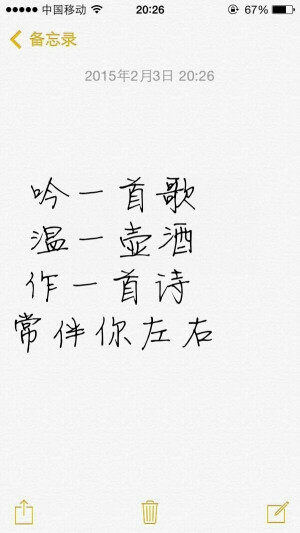 中国移动 20:26 67%
备忘录
2015年2月3日 20:26
吟一首歌
温一壶酒
作一首诗
常伴你左右